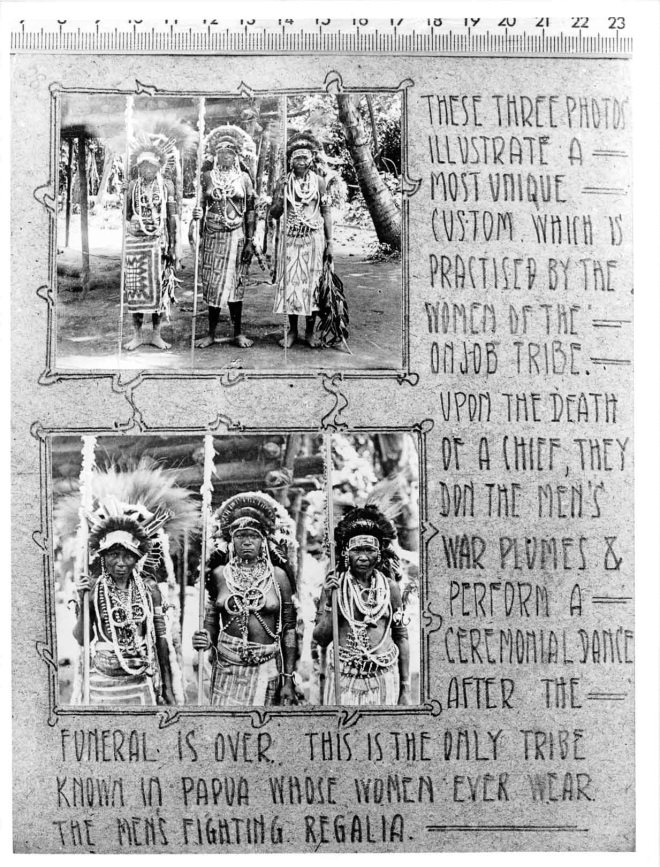 7 8 9 10 11 12 13 14 15 16 17 18 19 20 21 22 23
THESE THREE PHOTOS
ILLUSTRATE A
MOST UNIQUE
CUSTOM. WHICH IS
PRACTISED BY THE
WOMEN OF THE
ONJOB TRIBE.
UPON THE DEATH
OF A CHIEF, THEY
DON THE MEN'S
WAR PLUMES &
PERFORM A
CEREMONIAL DANCE
AFTER THE
FUNERAL IS OVER. THIS IS THE ONLY TRIBE
KNOWN IN PAPUA WHOSE WOMEN EVER WEAR
THE MENS FIGHTING REGALIA.